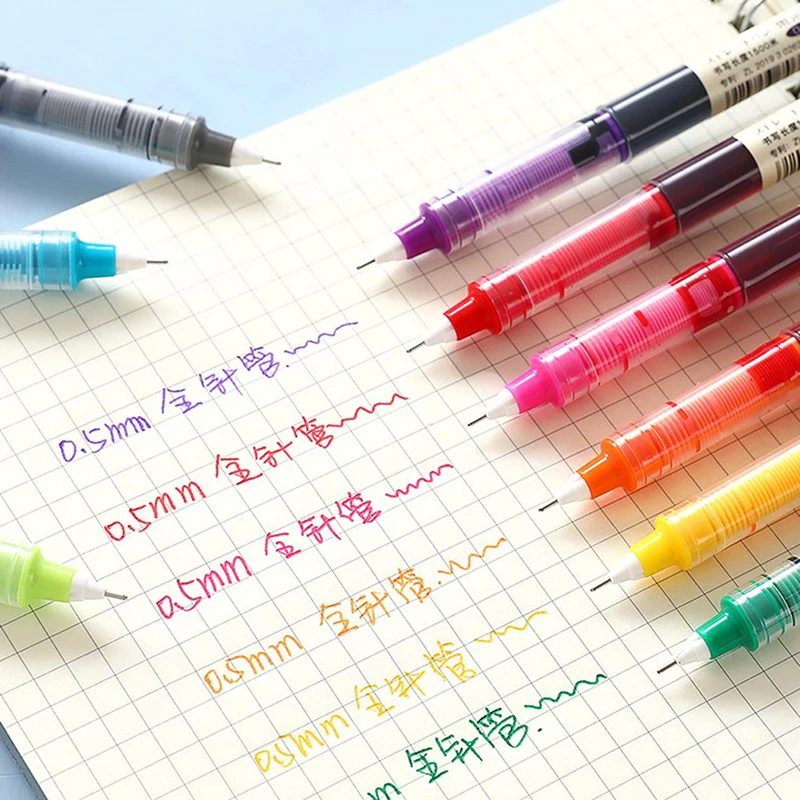 书写长度1500米
专利: ZL 2019 3 026
书写长度
专利: Z
0.5mm 全针管
0.5mm 全针管
0.5mm 全针管
0.5mm 全针管
0.5mm 全针管
m 全针管